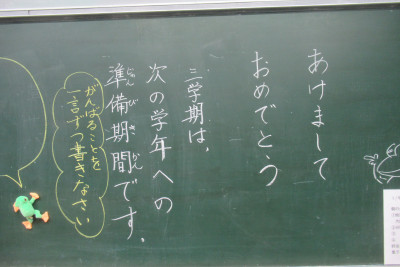 あけまして
おめでとう
三学期は、
次の学年への
準備期間です。
じゅんびきかん
がんばることを
一言ずつ書きなさい